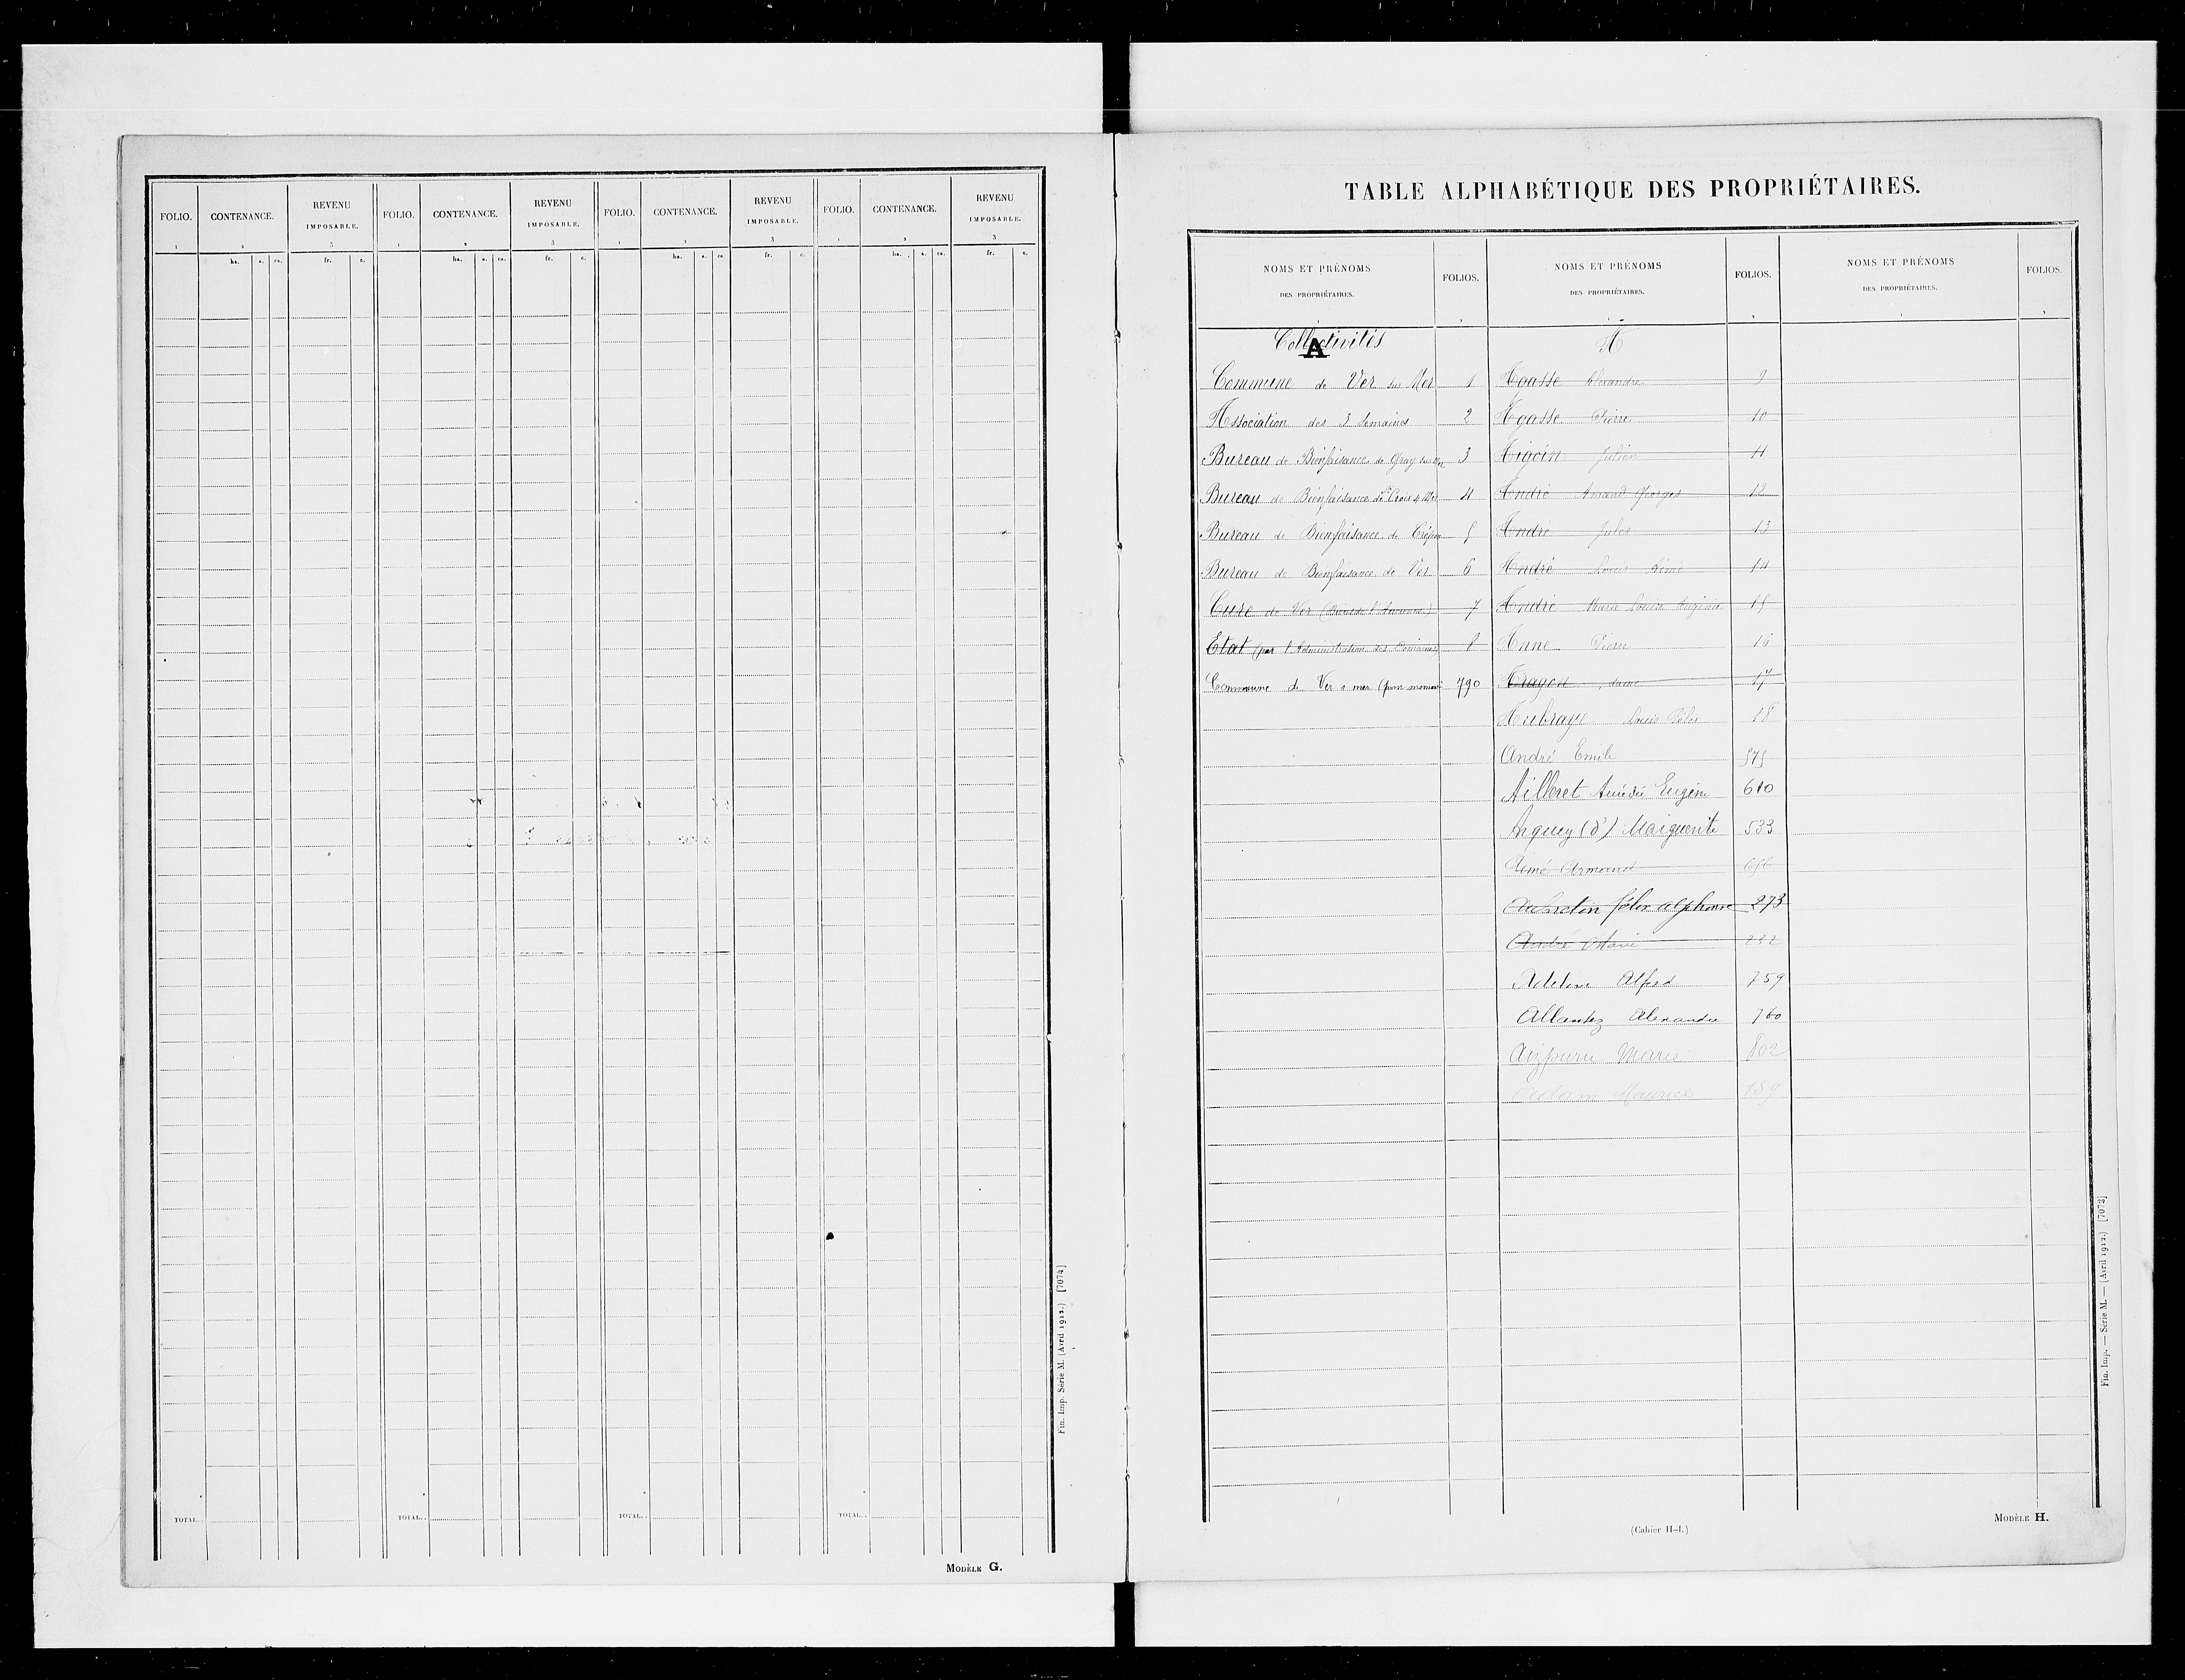 FOLIO. CONTENANCE. REVENU IMPOSABLE. FOLIO. CONTENANCE. REVENU IMPOSABLE. FOLIO. CONTENANCE. REVENU IMPOSABLE. FOLIO. CONTENANCE. REVENU IMPOSABLE.
1 2 3 1 2 3 1 2 3 1 2 3
ha. a. ca. fr. c. ha. a. ca. fr. c. ha. a. ca. fr. c. ha. a. ca. fr. c.
TOTAL.. TOTAL.. TOTAL.. TOTAL..
Modèle G.
Fin. Imp. Série M. (Avril 1912.) [7074]
TABLE ALPHABÉTIQUE DES PROPRIÉTAIRES.
NOMS ET PRÉNOMS DES PROPRIÉTAIRES. FOLIOS. NOMS ET PRÉNOMS DES PROPRIÉTAIRES. FOLIOS. NOMS ET PRÉNOMS DES PROPRIÉTAIRES. FOLIOS.
1 2 1 2 1 2
Collectivités
A
Commune de Ver sur Mer 1
Association des 3 Semaines 2
Bureau de Bienfaisance de Gray sur Mer 3
Bureau de Bienfaisance de Ste Croix s. Mer 4
Bureau de Bienfaisance de Crépon 5
Bureau de Bienfaisance de Ver 6
Cure de Ver 7
Etat (par l'Administration des Domaines) 8
Commune de Ver s mer 790
A
Agasse Alexandre 9
Agasse Pierre 10
Aigoin Julien 11
André Amand Georges 12
André Jules 13
André Louis Aimé 14
André Marie Louise Eugénie 15
Anne Pierre 16
Aragon, dame 17
Aubraye Louis Félix 18
André Emile 575
Ailleret Amédée Eugène 610
Arquey (d') Marguerite 533
Aimé Armand 656
Aubreton félix alphonse 273
André 232
Adeline Alfred 759
Allantez Alexandre 760
Aizpuru Marie 802
Adam Maurice 159
(Cahier H-I.)
Modèle H.
Fin. Imp. — Série M. — (Avril 1912.) [7072]